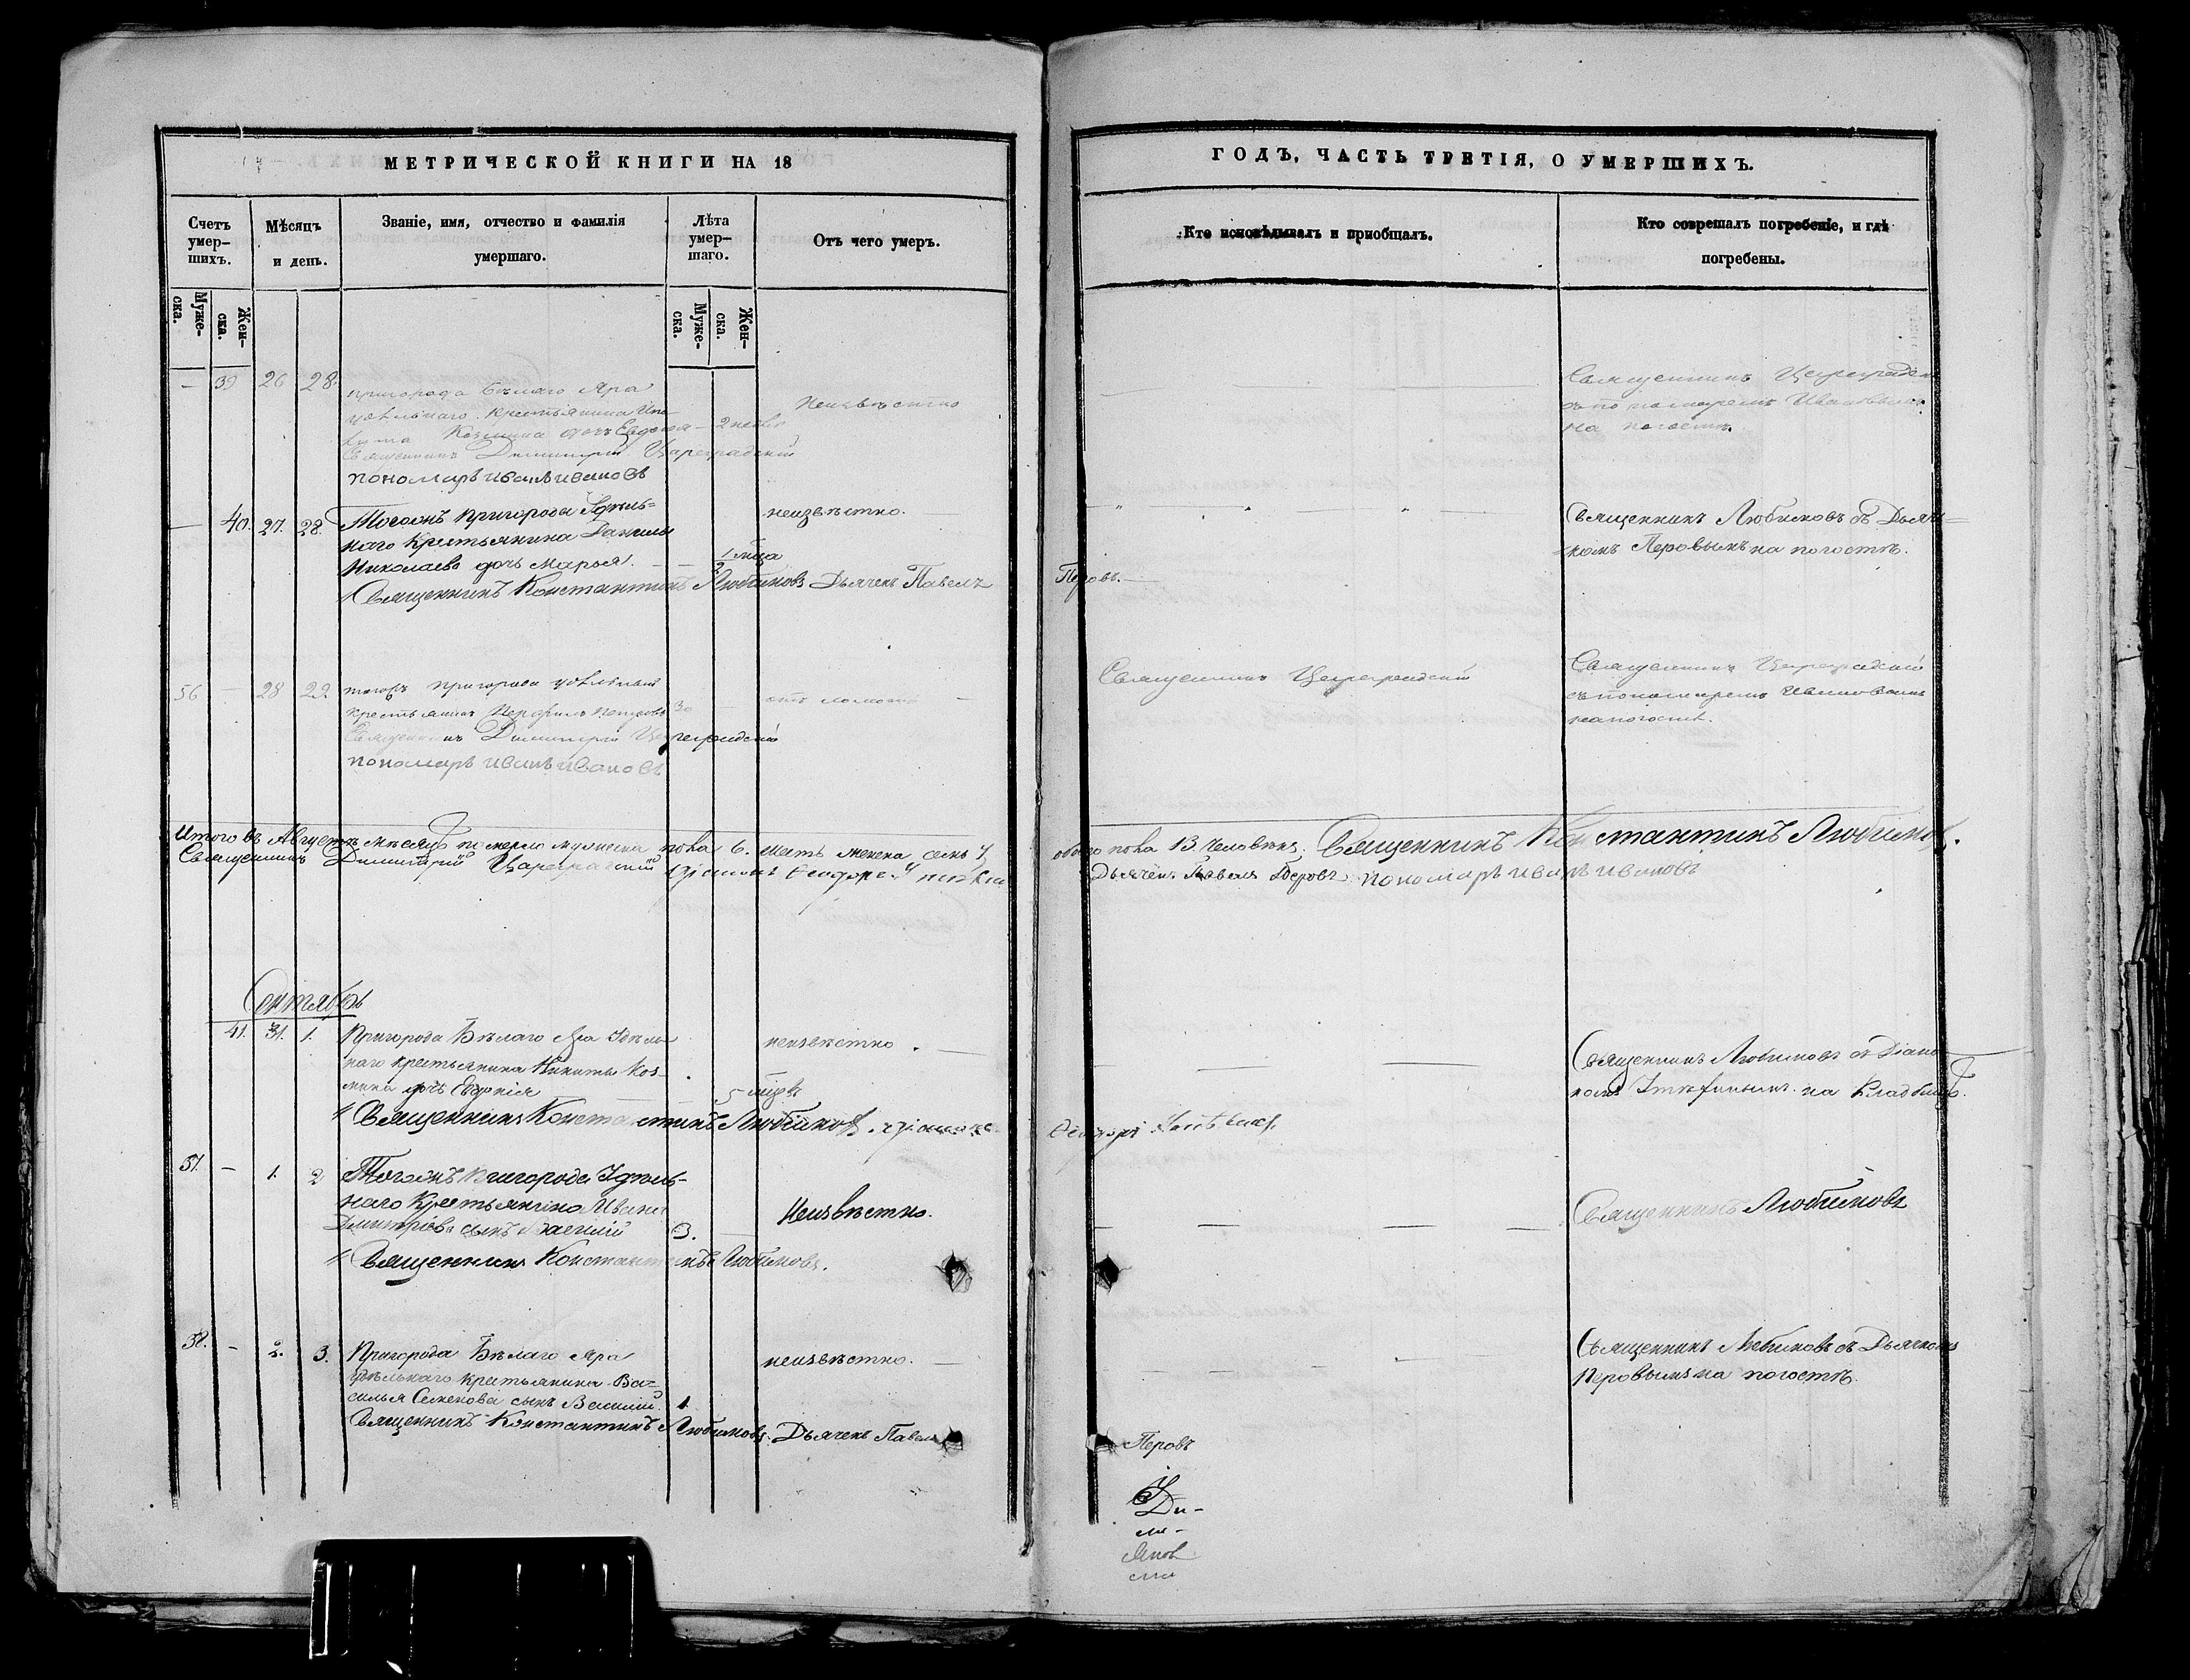 МЕТРИЧЕСКОЙ КНИГИ НА 18
Счетъ умер-шихъ.
Мѣсяцъ и день.
Званіе, имя, отчество и фамилія умершаго.
Лѣта умер-шаго.
Отъ чего умеръ.
Муже-ска.
Жен-ска.
Муже-ска.
Жен-ска.
— 39 26 28.
пригорода Бѣлаго Яра
удѣльнаго крестьянина
Козмина дочь Евдокія — 2 недѣ
Неизвѣстно
Священникъ Димитрій Цареградскій
пономарь Иванъ Ивановъ
— 40. 27. 28.
Тогожъ пригорода Удѣль=
наго Крестьянина Данилы
Николаева дочь Марья. — —
неизвѣстно.
Священникъ Константинъ Любимовъ Дьячекъ Павелъ
56 — 28 29
тогожъ пригорода удѣльный
крестьянинъ Петровъ 30 —
Священникъ Димитрій Цареградскій
пономарь Иванъ Ивановъ
Итого въ Августѣ мѣсяцѣ померло мужеска пола 6. шесть женска семь 7
Священникъ Димитрій Цареградскій
Сентябрь
41. 31. 1.
Пригорода Бѣлаго Яра Удѣль
наго крестьянина Никиты Коз-
мина дочь Евдокія
неизвѣстно. —
Священникъ Константинъ Любимовъ.
57. — 1. 2
Тогожъ пригорода Удѣль-
наго Крестьянина Ивана
Димитріева сынъ Василій 3. —
Неизвѣстно.
Священникъ Константинъ Любимовъ.
58. — 2. 3.
Пригорода Бѣлаго Яра
удѣльнаго крестьянина Ва=
силья Семенова сынъ Василій. 1.
неизвѣстно. —
Священникъ Константинъ Любимовъ. Дьячекъ Павелъ
ГОДЪ, ЧАСТЬ ТРЕТІЯ, О УМЕРШИХЪ.
Кто исповѣдывалъ и пріобщалъ.
Кто соврешалъ погребеніе, и гдѣ погребены.
Священникъ Цареградскій
съ пономаремъ Ивановымъ
на погостѣ.
Священникъ Любимовъ съ Дьяч=
комъ Перовымъ на погостѣ.
Перовъ. —
Священникъ Цареградскій
Священникъ Цареградскій
съ пономаремъ Ивановымъ
на погостѣ.
обоего пола 13. человѣкъ. Священникъ Константинъ Любимовъ.
Дьячекъ Павелъ Перовъ. пономарь Иванъ Ивановъ
Священникъ Любимовъ съ Діако
номъ на Кладбищѣ.
Священникъ Любимовъ
Священникъ Любимовъ съ Дьячкомъ
Перовымъ на погостѣ.
Перовъ